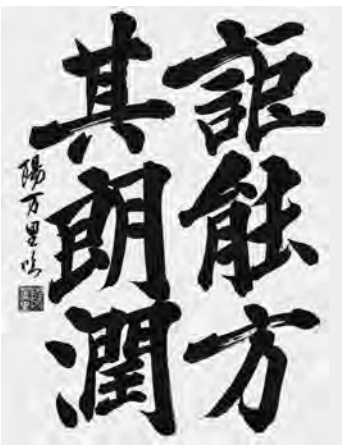 詎能方
其朗潤
陽万里